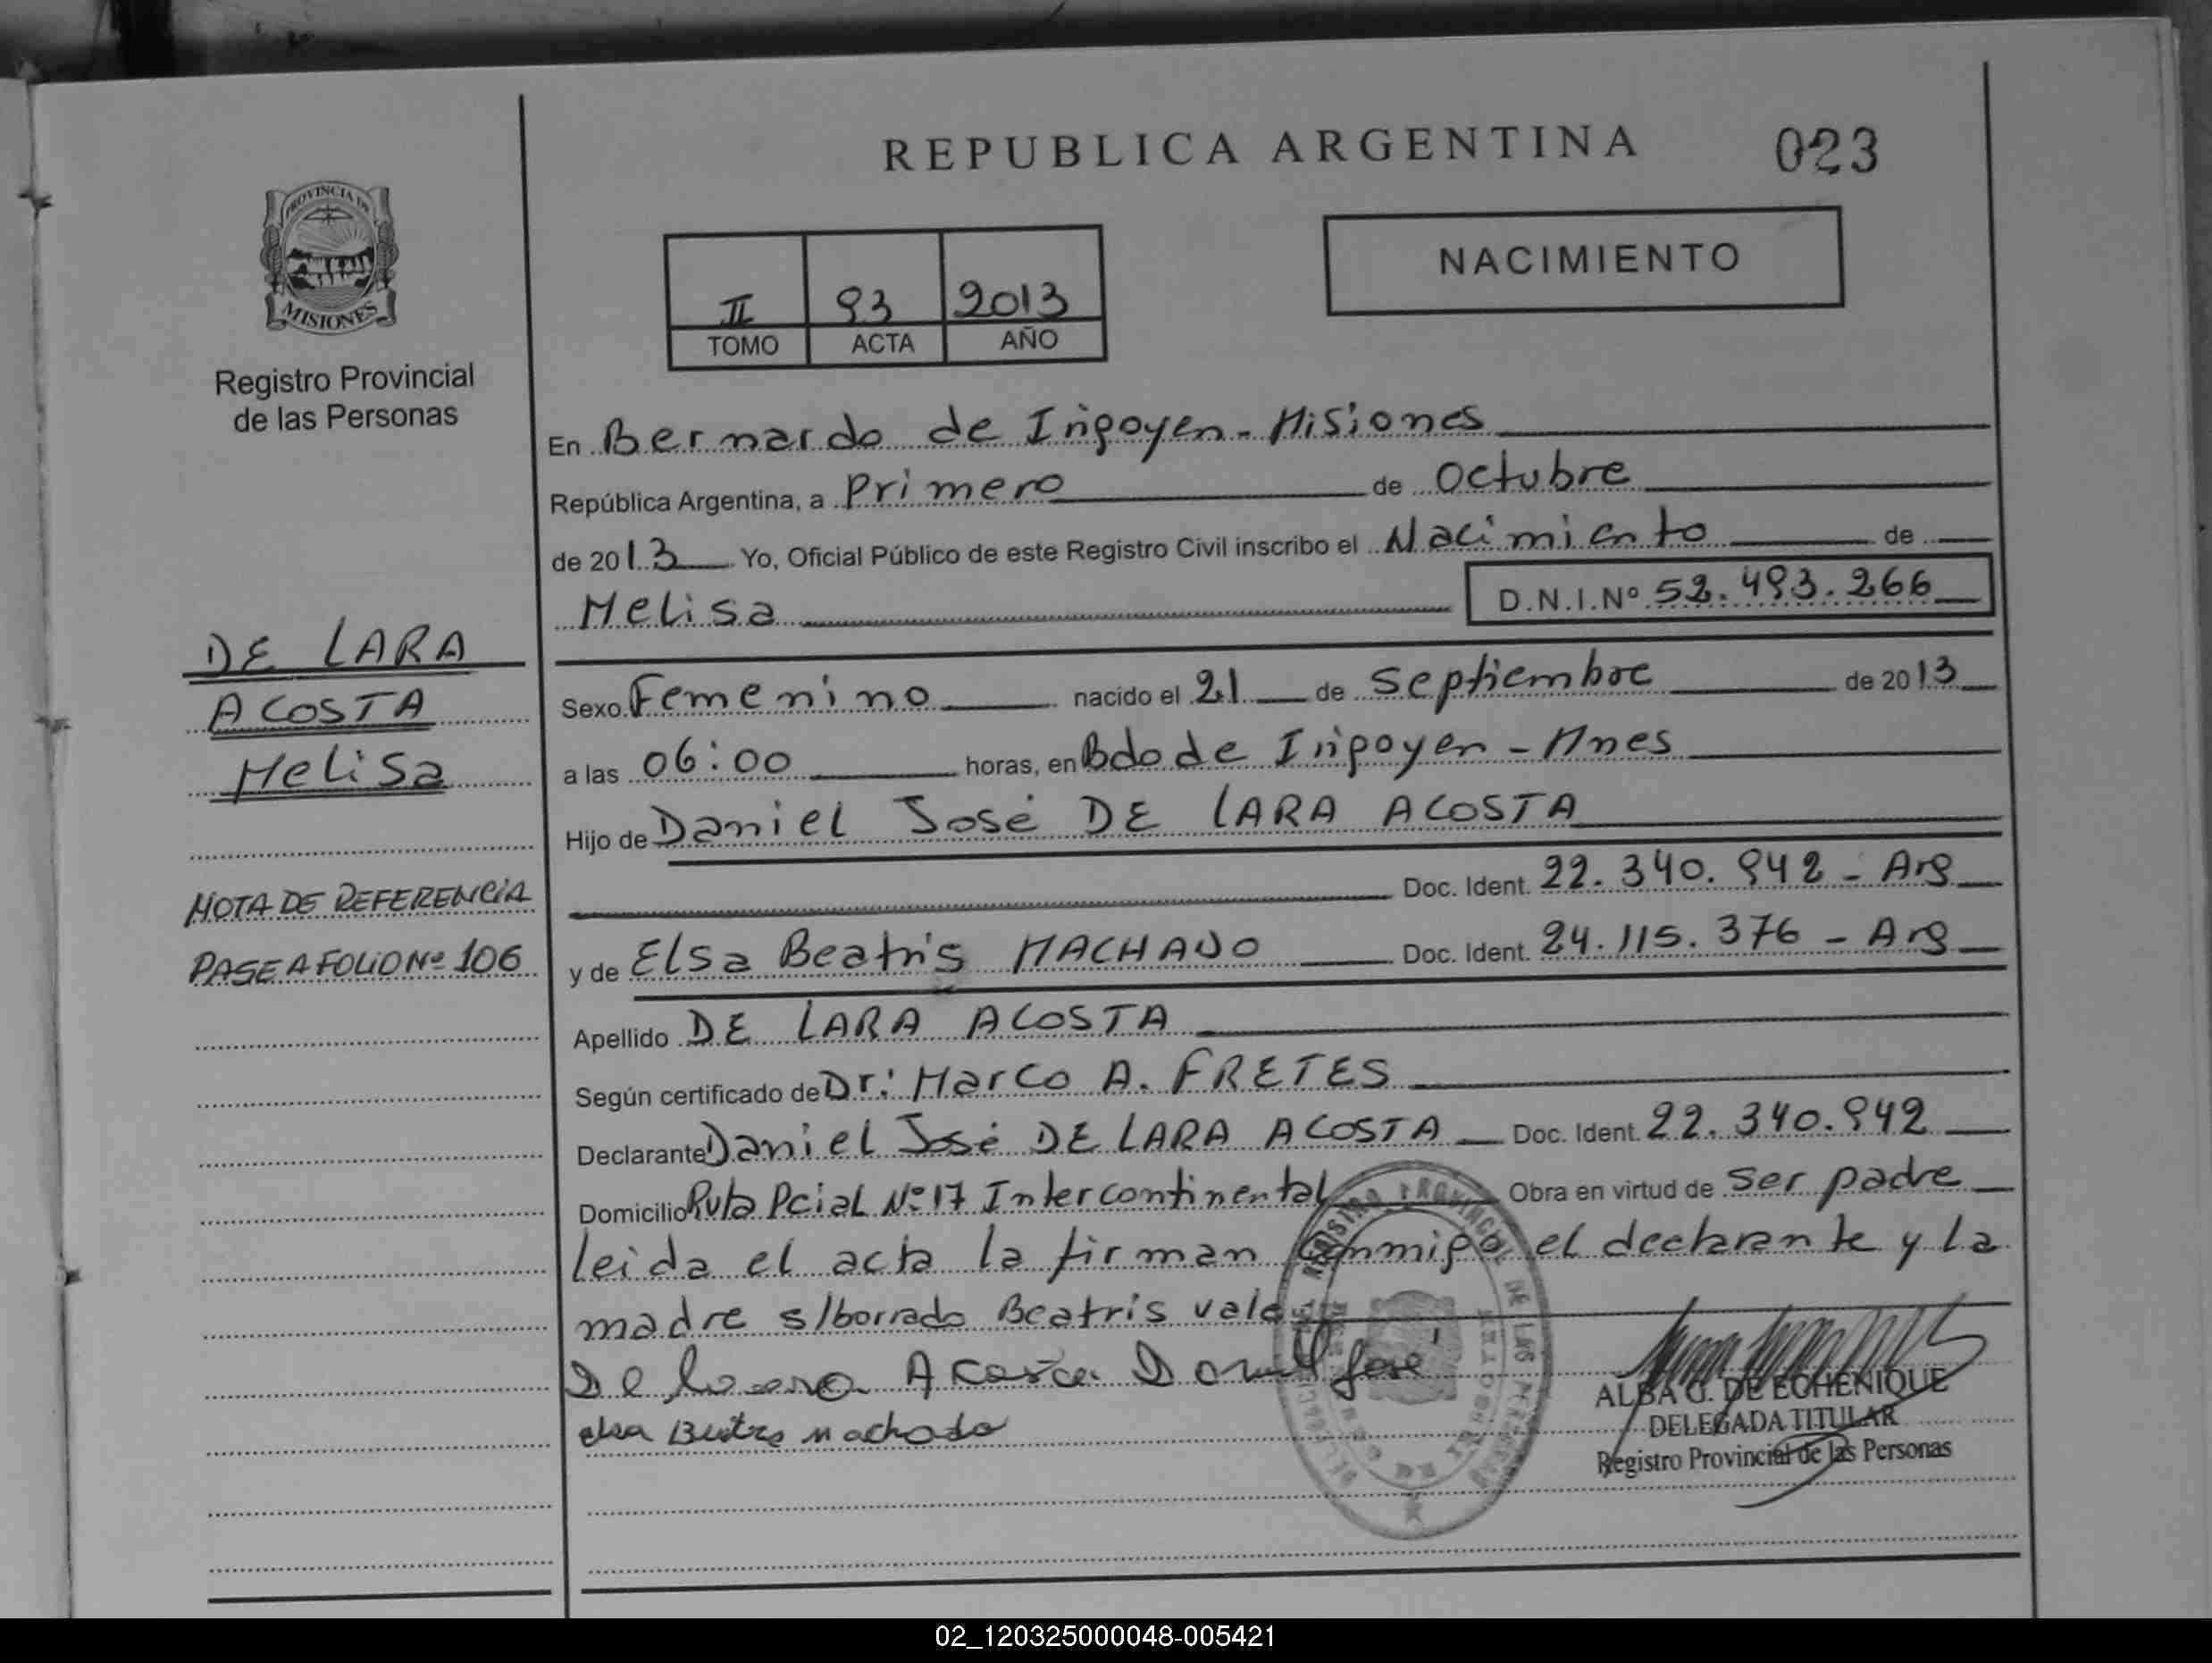 REPUBLICA ARGENTINA
023
PROVINCIA DE
MISIONES
Registro Provincial
de las Personas
II 93 2013
TOMO ACTA AÑO
NACIMIENTO
En Bernardo de Irigoyen - Misiones
República Argentina, a Primero de Octubre
de 2013 Yo, Oficial Público de este Registro Civil inscribo el Nacimiento de
Melisa D.N.I.Nº 52.493.266
DE LARA
ACOSTA
Melisa
NOTA DE REFERENCIA
PASE A FOLIO Nº 106
Sexo Femenino nacido el 21 de Septiembre de 2013
a las 06:00 horas, en Bdo de Irigoyen - Mnes
Hijo de Daniel José DE LARA ACOSTA
Doc. Ident. 22.340.942 - Arg
y de Elsa Beatris MACHADO Doc. Ident. 24.115.376 - Arg
Apellido DE LARA ACOSTA
Según certificado de Dr: Marco A. FRETES
Declarante Daniel José DE LARA ACOSTA Doc. Ident. 22.340.942
Domicilio Ruta Pcial Nº 17 Intercontinental Obra en virtud de ser padre
leida el acta la firman conmigo el declarante y la
madre s/borrado Beatris vale
De Lara Acosta Daniel Jose
elsa Beatris machado
REGISTRO PROVINCIAL DE LAS PERSONAS
ALBA G. DE ECHENIQUE
DELEGADA TITULAR
Registro Provincial de las Personas
02_120325000048-005421